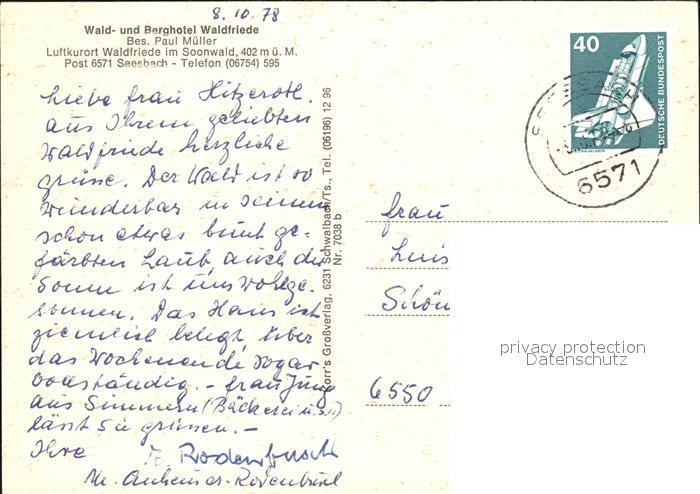 8.10.78
Wald- und Berghotel Waldfriede
Bes. Paul Müller
Luftkurort Waldfriede im Soonwald, 402 m ü. M.
Post 6571 Seesbach - Telefon (06754) 595
Liebe Frau Hitzeroth.
aus Ihrem geliebten
Waldfriede herzliche
grüsse. Der Wald ist so
wunderbar in seinem
schon etwas bunt ge-
färbten Laub, auch die
Sonne ist uns wohlge-
sonnen. Das Haus ist
ziemlich belegt, über
das Wochenende sogar
vollständig. - Frau Jung
aus Simmern (Bäckerei u.s.w)
lässt Sie grüssen. -
Ihre
Rodenbusch
M. Anheuser-Rodenbusch
orr's Großverlag, 6231 Schwalbach/Ts., Tel. (06196) 12 96
Nr. 7038 b
40
DEUTSCHE BUNDESPOST
6571
Frau
Luis
Schön
6550
privacy protection
Datenschutz